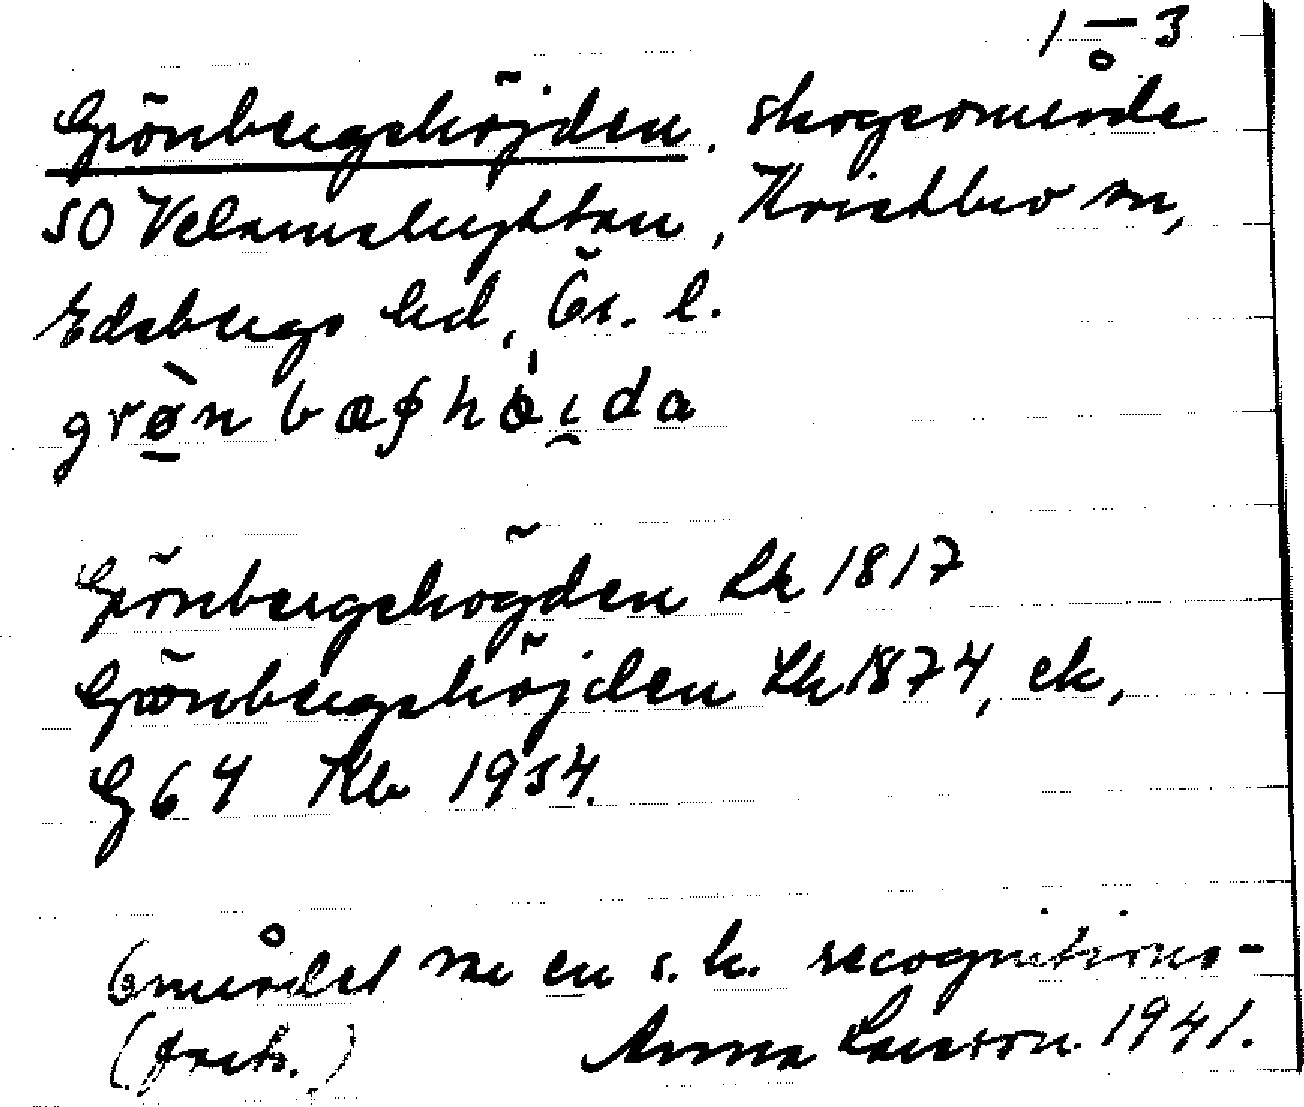 1–3
Grönbergshöjden. skogsområde
SO Velamshyttan, Kvistbro sn,
Edsbergs hd, Ör. l.
grø̀nbæ̨ṣhø̀i̯da
Grönbergshögden Lk 1817
Grönbergshöjden Lk 1874, ek,
G 64 Kb 1954.
Området var en s. k. recognitions-
(forts.) Anna Larsson 1941.